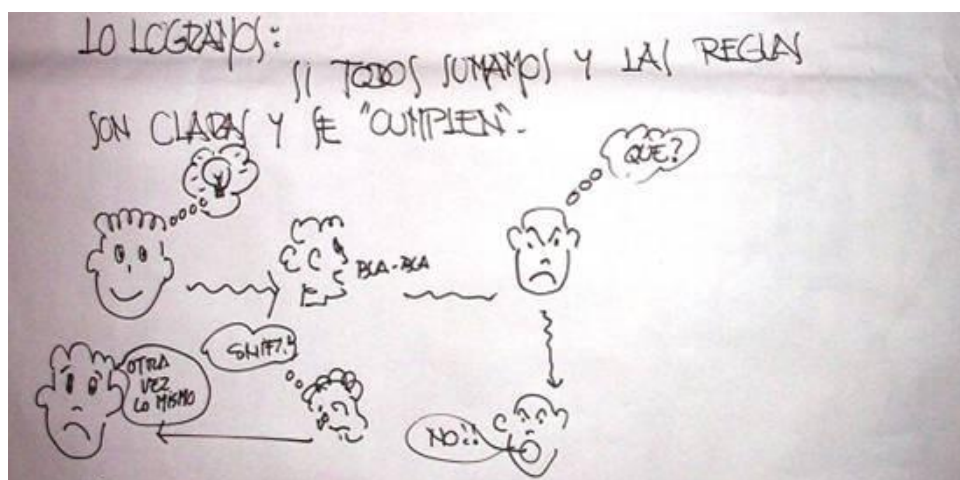 LO LOGRAMOS:
SI TODOS SUMAMOS Y LAS REGLAS
SON CLARAS Y SE "CUMPLEN".
QUE?
BLA-BLA
SNIFF!!
OTRA
VEZ
LO MISMO
NO!!